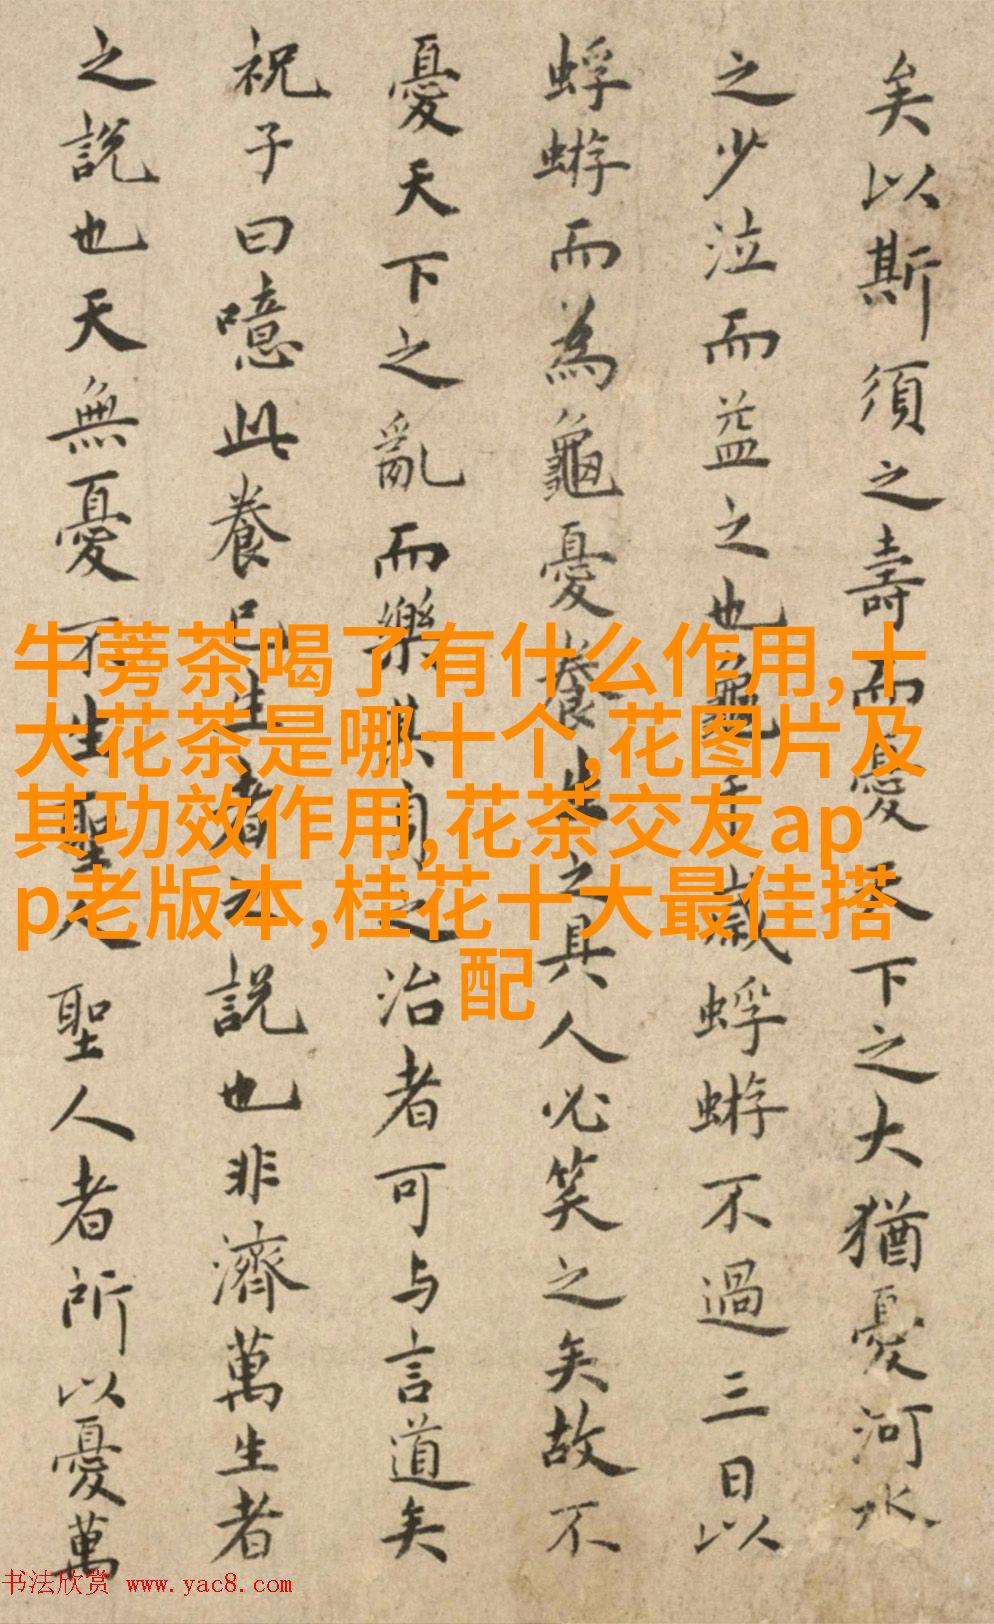 矣以斯須之壽而憂天下之大猶憂河水
之少泣而益之也龜千歲蜉蝣不過三日以
蜉蝣而為龜憂養生之具人必笑之矣故不
憂天下之亂而樂其身之治者可与言道矣
祝子曰噫此養己生者之説也非濟萬生者
之説也天無憂不生聖人聖人者所以憂萬
牛蒡茶喝了有什么作用,十
大花茶是哪十个,花图片及
其功效作用,花茶交友ap
p老版本,桂花十大最佳搭
配
书法欣赏 www.yac8.com